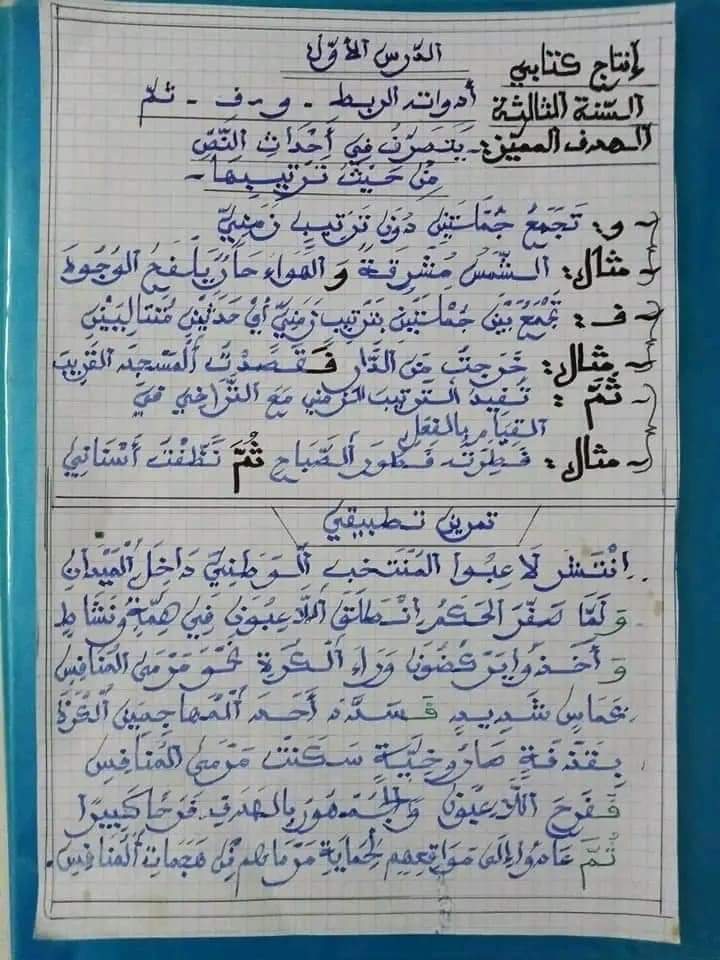 إنتاج كتابي
الدّرس الأوّل
السّنة الثالثة
أدوات الربط - و - ف - ثمّ
الهدف المميّز: يَتَصَرّفُ فِي أَحْدَاثِ النَّصِّ
مِنْ حَيْثُ تَرْتِيبِهَا -
- و: تَجْمَعُ جُمْلَتَيْنِ دُونَ تَرْتِيبٍ زَمَنِيٍّ
- مثال: الشّمْسُ مُشْرِقَةٌ وَ الهَوَاءُ حَارٌّ يَلْفَحُ الوُجُوهَ
- ف: تَجْمَعُ بَيْنَ جُمْلَتَيْنِ بِتَرْتِيبٍ زَمَنِيٍّ أَيْ حَدَثَيْنِ مُتَتَالِيَيْنِ
- مثال: خَرَجْتُ مِنَ الدَّارِ فَقَصَدْتُ الْمَسْجِدَ القَرِيبَ
- ثُمَّ: تُفِيدُ التَّرْتِيبَ الزّمني مَعَ التَّرَاخِي فِي
القِيَامِ بِالفِعْلِ
- مثال: فَطِرْتُ فَطُورَ الصَّبَاحِ ثُمَّ نَظَّفْتُ أَسْنَانِي
تمرين تطبيقي
.. انْتَشَرَ لَاعِبُوا المُنْتَخَبِ الْوَطَنِيِّ دَاخِلَ الْمَيْدَانِ
وَ لَمَّا صَفّرَ الحَكَمُ انْطَلَقَ اللّاعِبُونَ فِي هِمَّةٍ وَنَشَاطٍ
وَ أَخَذُوا يَرْكُضُونَ وَرَاءَ الْكُرَةِ نَحْوَ مَرْمَى المُنَافِسِ
بِحَمَاسٍ شَدِيدٍ فَسَدَّدَ أَحَدُ الْمُهَاجِمِينَ الْكُرَةَ
بِقَذْفَةٍ صَارُوخِيَّةٍ سَكَنَتْ مَرْمَى المُنَافِسِ
فَفَرِحَ اللَّاعِبُونَ وَالجُمْهُورُ بِالهَدَفِ فَرَحًا كَبِيرًا
ثُمَّ عَادُوا إِلَى مَوَاقِعِهِمْ لِحِمَايَةِ مَرْمَاهُمْ مِنْ هَجَمَاتِ الْمُنَافِسِ.